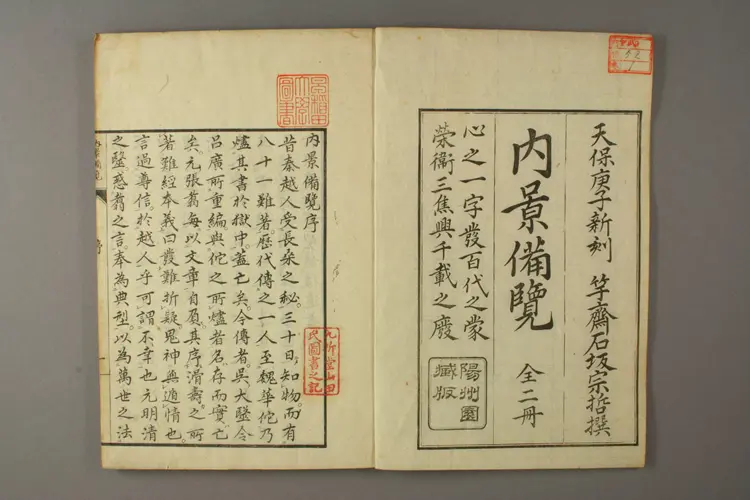 天保庚子新刻 竽齋石坂宗哲撰
内景備覽 全二冊
心之一字發百代之蒙
榮衞三焦興千載之廢
陽州園
藏版
早稲田
大學
圖書
内景備覽序
昔秦越人受長桑之秘。三十日。知物而有
八十一難著。歷代傳之一人。至魏華佗。乃
燼其書於獄中。蓋亡矣。今傳者。吳大醫令
呂廣所重編。與佗之所燼者。名存而實亡
矣。元張翥每以文章自負。其序滑壽之所
著難經本義曰。發難折疑。鬼神無遁情也。
言過尊信。於越人乎。可謂不幸也。元明清
之醫。惑翥之言。奉為典型。以為萬世之法
九折堂山田
氏圖書之記
内景備覽 序 一